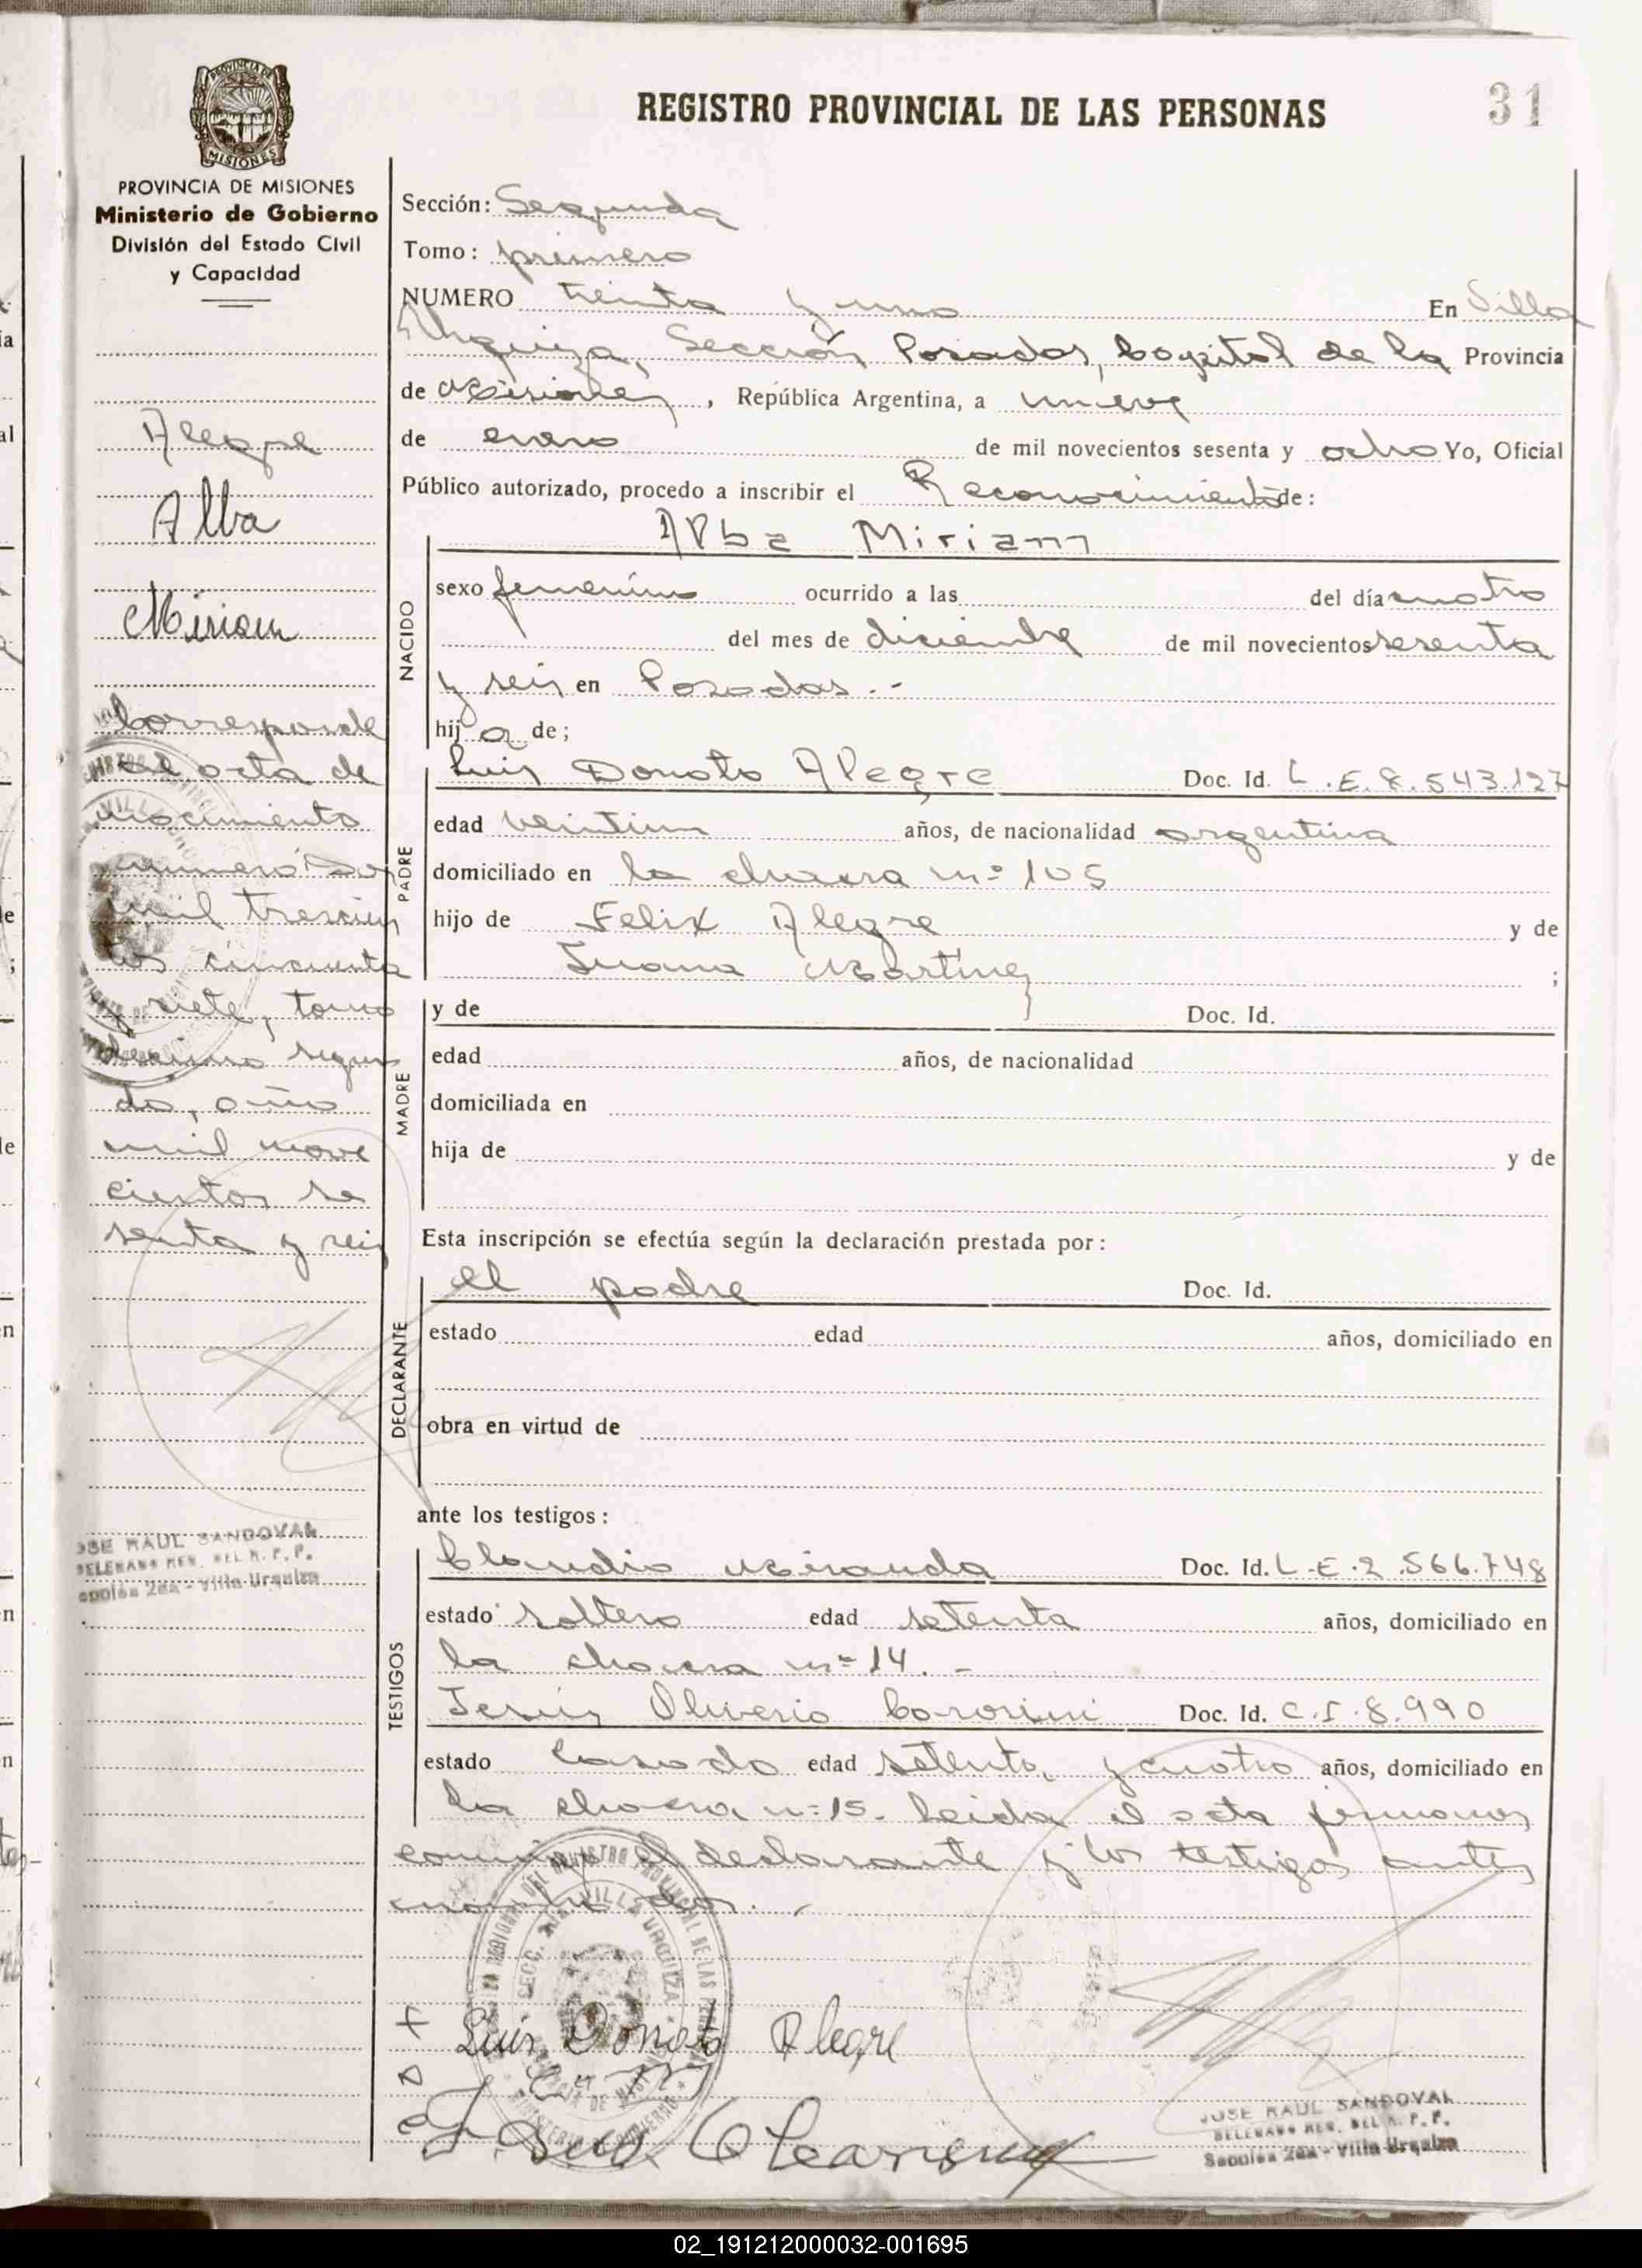 REGISTRO PROVINCIAL DE LAS PERSONAS
31
PROVINCIA DE MISIONES
Ministerio de Gobierno
División del Estado Civil
y Capacidad
Alegre
Alba
Miriam
Corresponde
al acta de
nacimiento
número dos
mil trescien
tos cincuenta
y siete, tomo
décimo segun
do, año
mil nove
cientos se
senta y seis
JOSE RAUL SANDOVAL
DELEGADO
Sección 2da - Villa Urquiza
Sección: Segunda
Tomo: primero
NUMERO treinta y uno En Villa
Urquiza, Sección Posadas, Capital de la Provincia
de Misiones, República Argentina, a nueve
de enero de mil novecientos sesenta y ocho Yo, Oficial
Público autorizado, procedo a inscribir el Reconocimiento de:
Alba Miriam
NACIDO
sexo femenino ocurrido a las del día cuatro
del mes de diciembre de mil novecientos sesenta
y seis en Posadas.-
hija de;
Luis Donato Alegre Doc. Id. L.E.8.543.127
PADRE
edad veintiun años, de nacionalidad argentina
domiciliado en la chacra nº 105
hijo de Felix Alegre y de
Juana Martinez ;
MADRE
y de Doc. Id.
edad años, de nacionalidad
domiciliada en
hija de y de
Esta inscripción se efectúa según la declaración prestada por:
DECLARANTE
el padre Doc. Id.
estado edad años, domiciliado en
obra en virtud de
ante los testigos:
TESTIGOS
Claudio Miranda Doc. Id. L.E.2.566.748
estado soltero edad setenta años, domiciliado en
la chacra nº 14.-
Jesús Oliverio Doc. Id. C.I.8.990
estado casado edad setenta y cuatro años, domiciliado en
la chacra nº 15. Leida el acta firmanos
conmigo el declarante y los testigos antes
VILLA URQUIZA
Luis Donato Alegre
JOSE RAUL SANDOVAL
DELEGADO
Sección 2da - Villa Urquiza
02_191212000032-001695